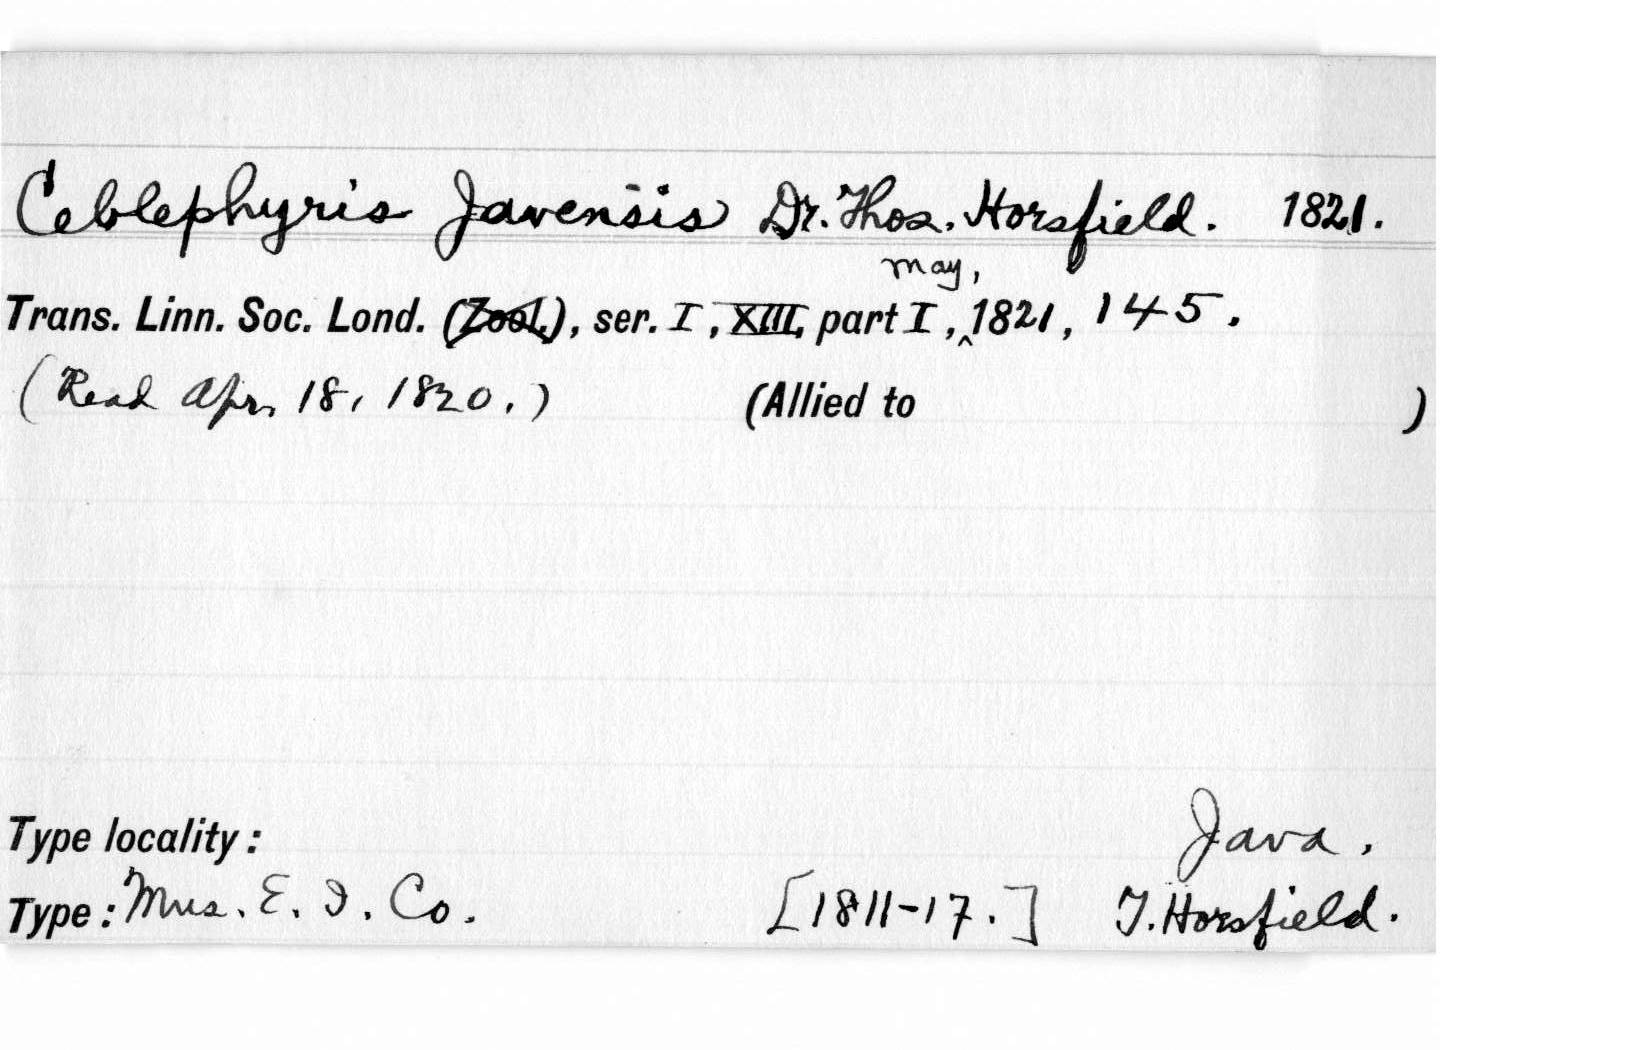 Ceblephyris Javensis Dr. Thos. Horsfield. 1821.
may,
Trans. Linn. Soc. Lond. (Zool.), ser. I, XIII, part I, ‸1821, 145.
(Read Apr. 18, 1820.) (Allied to )
Type locality: Java.
Type: Mus. E. I. Co. [1811-17.] T. Horsfield.